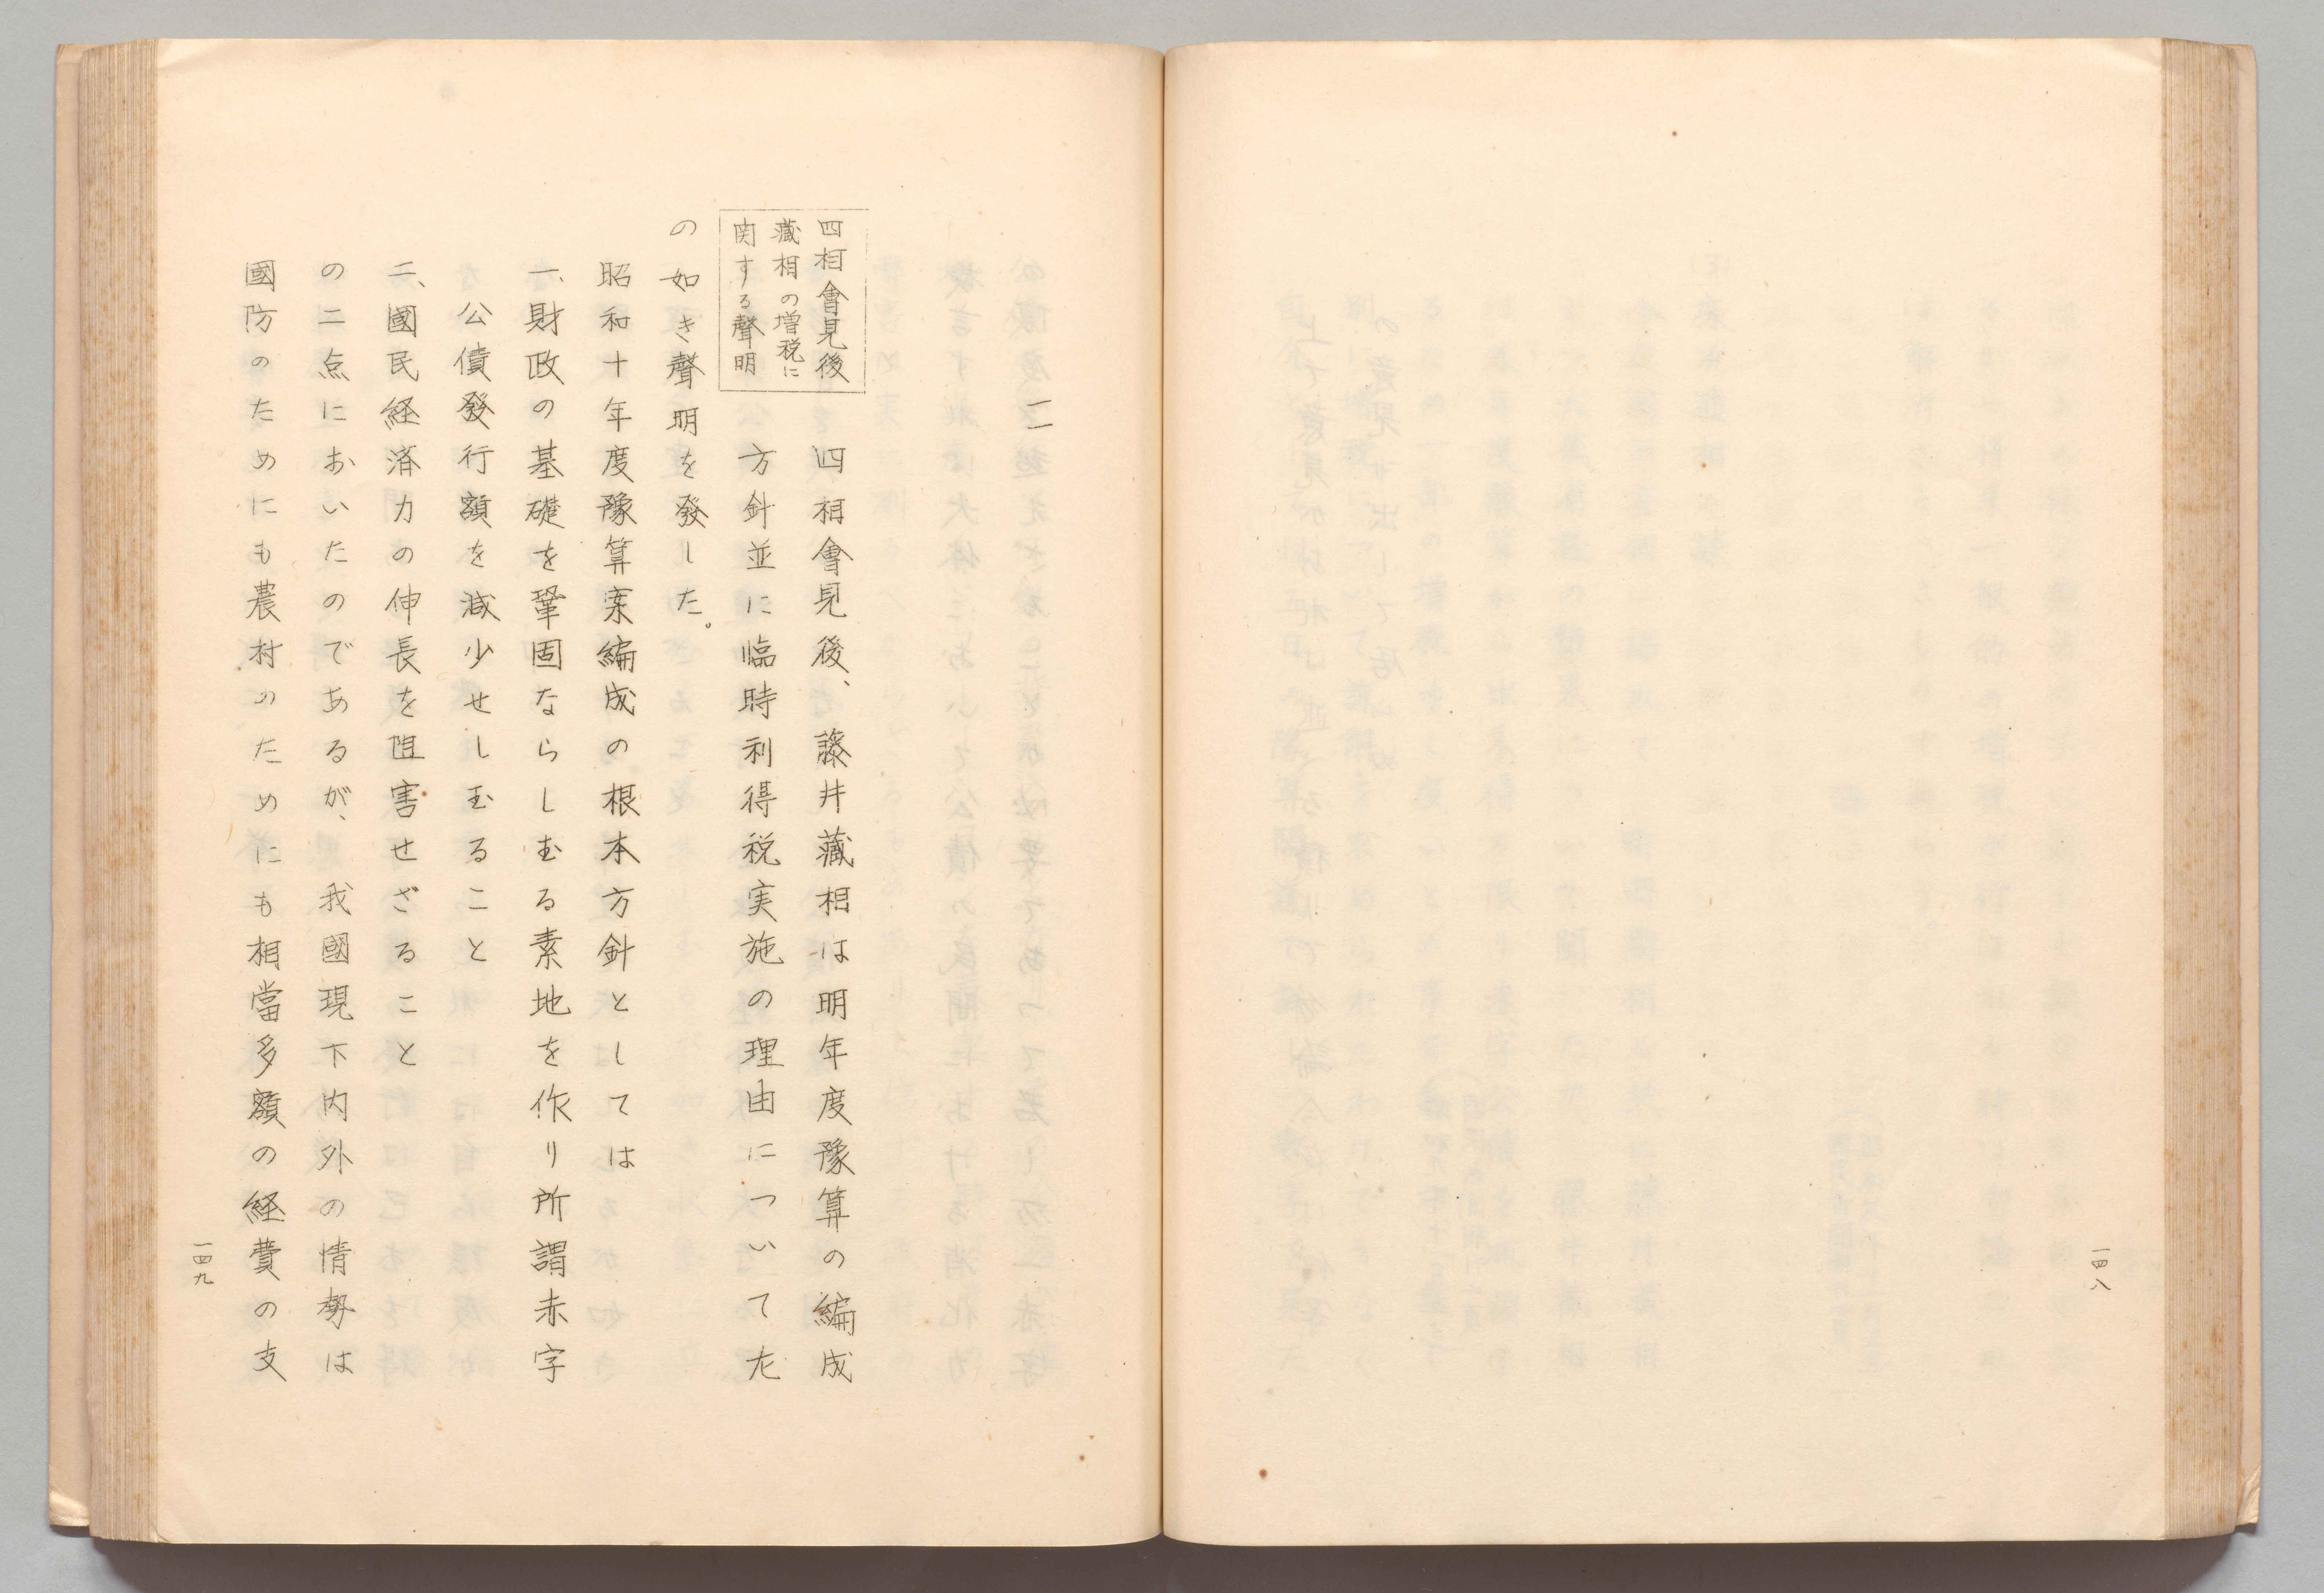 一四八
二
四相會見後
藏相の増税に
関する聲明
四相會見後、藤井藏相は明年度豫算の編成
方針並に臨時利得税実施の理由について左
の如き聲明を發した。
昭和十年度豫算案編成の根本方針としては
一、財政の基礎を鞏固ならしむる素地を作り所謂赤字
公債發行額を減少せしむること
二、國民経済力の伸長を阻害せざること
の二点においたのであるが、我國現下内外の情勢は
國防のためにも農村のためにも相當多額の経費の支
一四九